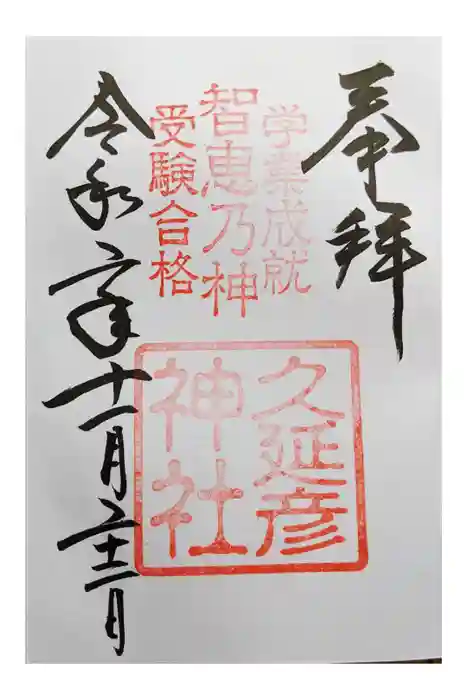 奉拝
学業成就
智恵乃神
受験合格
久延彦
神社
令和二年十一月二十二日